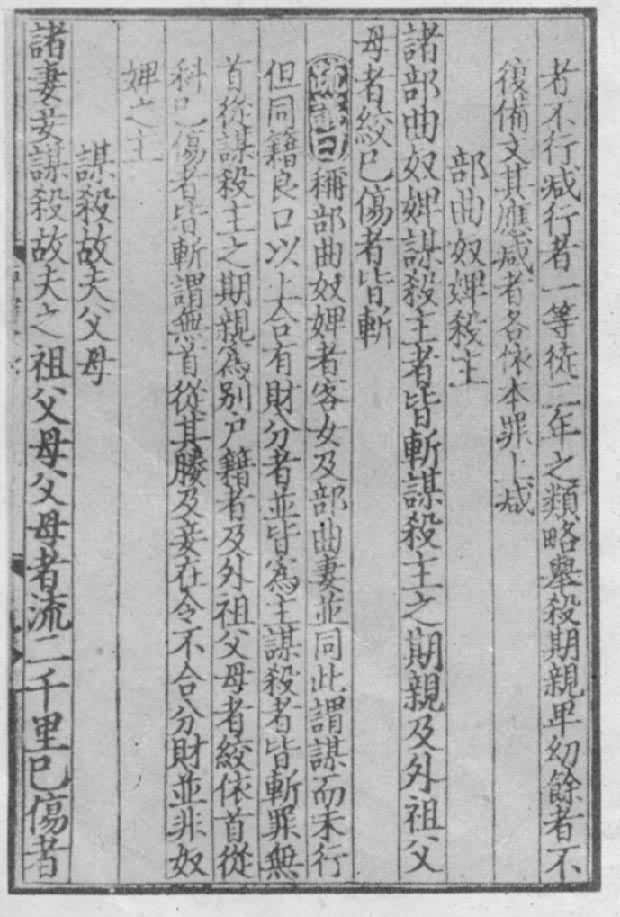 者不行減行者一等徒二年之類略舉殺期親卑幼餘者不
復備文其應減者各依本罪上減
部曲奴婢殺主
諸部曲奴婢謀殺主者皆斬謀殺主之期親及外祖父
母者絞已傷者皆斬
疏議曰稱部曲奴婢者客女及部曲妻並同此謂謀而未行
但同籍良口以上合有財分者並皆為主謀殺者皆斬罪無
首從謀殺主之期親為別戶籍者及外祖父母者絞依首從
科已傷者皆斬謂無首從其媵及妾在令不合分財並非奴
婢之主
謀殺故夫父母
諸妻妾謀殺故夫之祖父母父母者流二千里已傷者